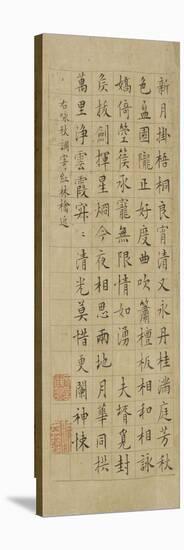 新月掛梧桐良宵清又永丹桂滿庭芳秋
色盈園隴正好度曲吹簫檀板相和相詠
嬌倚箜篌承寵無限情如湧 夫壻覓封
侯拔劍揮星爓今夜相思兩地月華同拱
萬里淨雲霞清光莫惜更闌神悚
右咏秋調寄紅林檎近